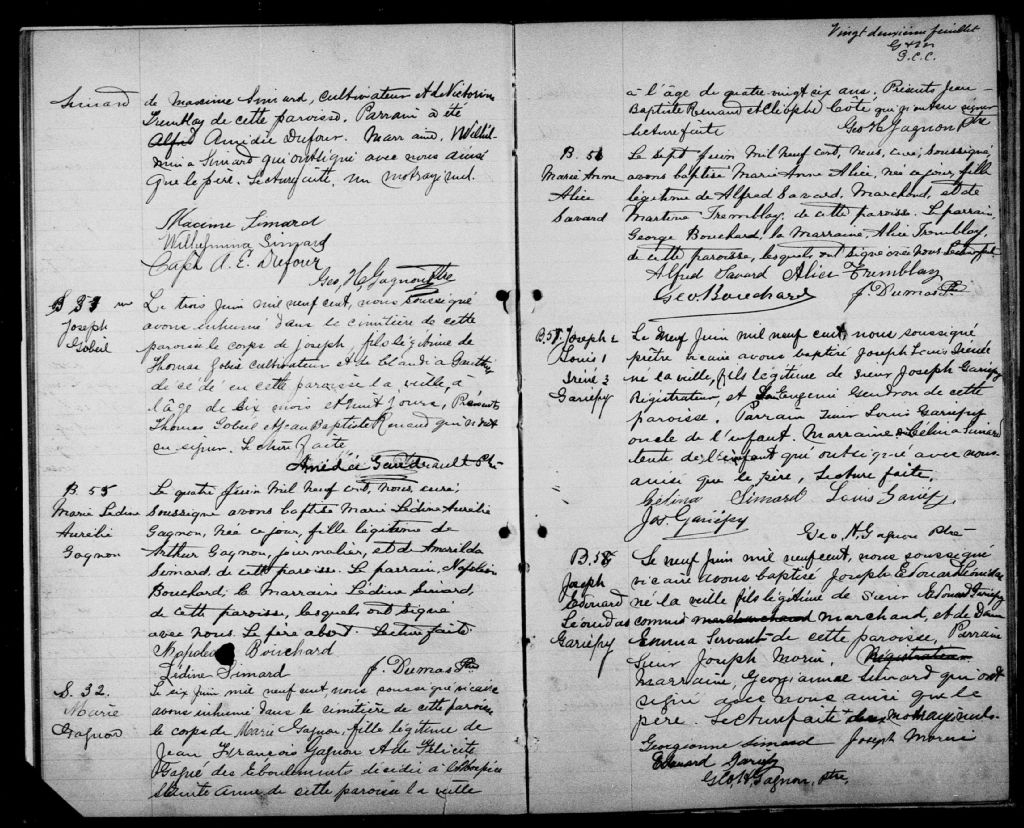 Simard
de Maxime Simard, cultivateur et de Victorine
Tremblay de cette paroisse. Parrain a été
Alfred Amédée Dufour. Marraine, Wilhel-
mina Simard qui ont signé avec nous ainsi
que le père. Lecture faite, un mot rayé nul.
Maxime Simard
Wilhelmina Simard
Capt A. E. Dufour
Geo. H. Gagnon Ptre
S 31
Joseph
Gobeil
Le trois Juin mil neuf cent, nous soussigné
avons inhumé dans le cimetière de cette
paroisse le corps de Joseph, fils légitime de
Thomas Gobeil cultivateur et de
décédé en cette paroisse la veille, à
l'âge de six mois et huit jours, Présents
Thomas Gobeil et Jean Baptiste Renaud qui n'ont
su signer. Lecture faite
Amédée Gaudreault Ptr
B. 55
Marie Lédine
Aurélie
Gagnon
Le quatre Juin mil neuf cent, nous, curé,
soussigné avons baptisé Marie Lédine Aurélie
Gagnon, née ce jour, fille légitime de
Arthur Gagnon, journalier, et d'Amarilda
Simard, de cette paroisse. Le parrain, Napoléon
Bouchard; la Marraine Lédine Simard,
de cette paroisse, lesquels ont signé
avec nous. Le père abst. Lecture faite
Napoléon Bouchard
Lédine Simard J. Dumas Ptre
S. 32.
Marie
Gagnon
Le six Juin mil neuf cent nous soussigné vicaire
avons inhumé dans le cimetière de cette paroisse
le corps de Marie Gagnon, fille légitime de
Jean François Gagnon et de Félicité
Gagné des Eboulements décédée à l'Hospice
Sainte Anne de cette paroisse la veille
Vingt deuxième feuillet
G.C.C.
à l'âge de quatre vingt six ans. Présents Jean-
Baptiste Renaud et Cléophe Coté qui n'ont su signer
Lecture faite Geo H Gagnon Ptre
B. 56
Marie Anne
Alice
Savard
Le sept Juin mil neuf cent, nous, curé, soussigné,
avons baptisé Marie Anne Alice, née ce jour, fille
légitime de Alfred Savard, Marchand, et de
Martine Tremblay, de cette paroisse. Le parrain,
George Bouchard, la Marraine, Alice Tremblay,
de cette paroisse, lesquels ont signé avec nous Lecture faite
Alfred Savard Alice Tremblay
Geo Bouchard J. Dumas Ptr
B57. Joseph 2
Louis 1
Iréné 3
Gariépy
Le neuf Juin mil neuf cent, nous soussigné
prêtre vicaire avons baptisé Joseph Louis Irénée
né la veille, fils légitime de Sieur Joseph Gariépy
Régistrateur, et Eugénie Gendron de cette
paroisse. Parrain Sieur Louis Gariépy
oncle de l'enfant. Marraine Célina Simard
tante de l'enfant qui ont signé avec nous
ainsi que le père, Lecture faite,
Célina Simard Louis Gariépy
Jos. Gariépy
Geo. H. Gagnon Ptre
B. 58
Joseph
Edouard
Léonidas
Gariépy
Le neuf Juin mil neuf cent, nous soussigné
vicaire avons baptisé Joseph Edouard Léonidas
né la veille fils légitime de Sieur Edouard Gariépy
commis marchand, et de Dame
Emma Servant de cette paroisse, Parrain
Sieur Joseph Morin, Régistrateur
Marraine, Georgianne Simard qui ont
signé avec nous ainsi que le
père. Lecture faite deux mots rayés nuls.
Georgianne Simard Joseph Morin
Edouard Gariépy
Geo. H. Gagnon, Ptre,